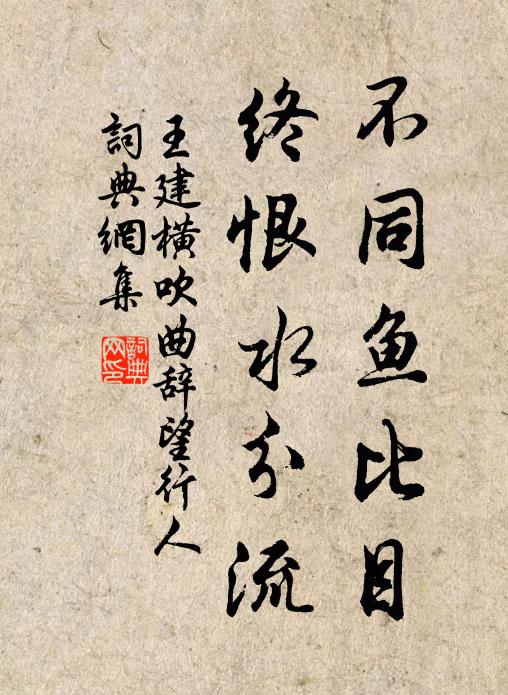 不同鱼比目
终恨水分流
王建横吹曲辞望行人
詞典網集
詞典網印